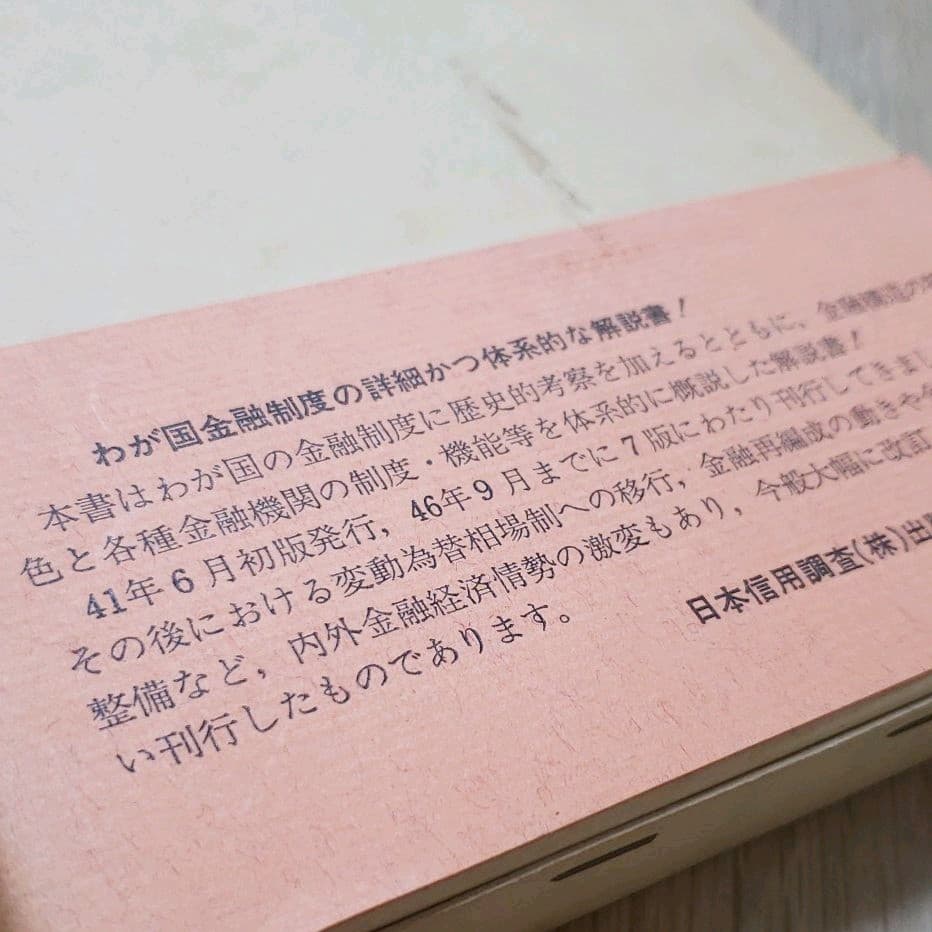 わが国金融制度の詳細かつ体系的な解説書！
本書はわが国の金融制度に歴史的考察を加えるとともに，金融構造の特
色と各種金融機関の制度・機能等を体系的に概説した解説書！
41年6月初版発行，46年9月までに7版にわたり刊行してきまし
その後における変動為替相場制への移行，金融再編成の動きや
整備など，内外金融経済情勢の激変もあり，今般大幅に改訂
い刊行したものであります。
日本信用調査(株)出版